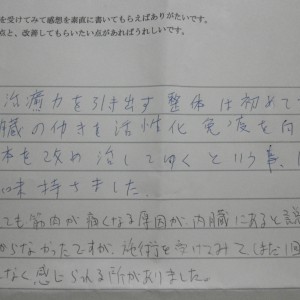 を受けてみて感想を素直に書いてもらえばありがたいです。
点と、改善してもらいたい点があればうれしいです。
治癒力を引き出す整体は初めて
臓の働きを活性化免疫を向
体を改め治してゆくという事、
味持ちました。
ても筋肉が痛くなる原因が内臓にあると説
からなかったですが、施術を受けてみて(まだ1回
なく感じられる所がありました。